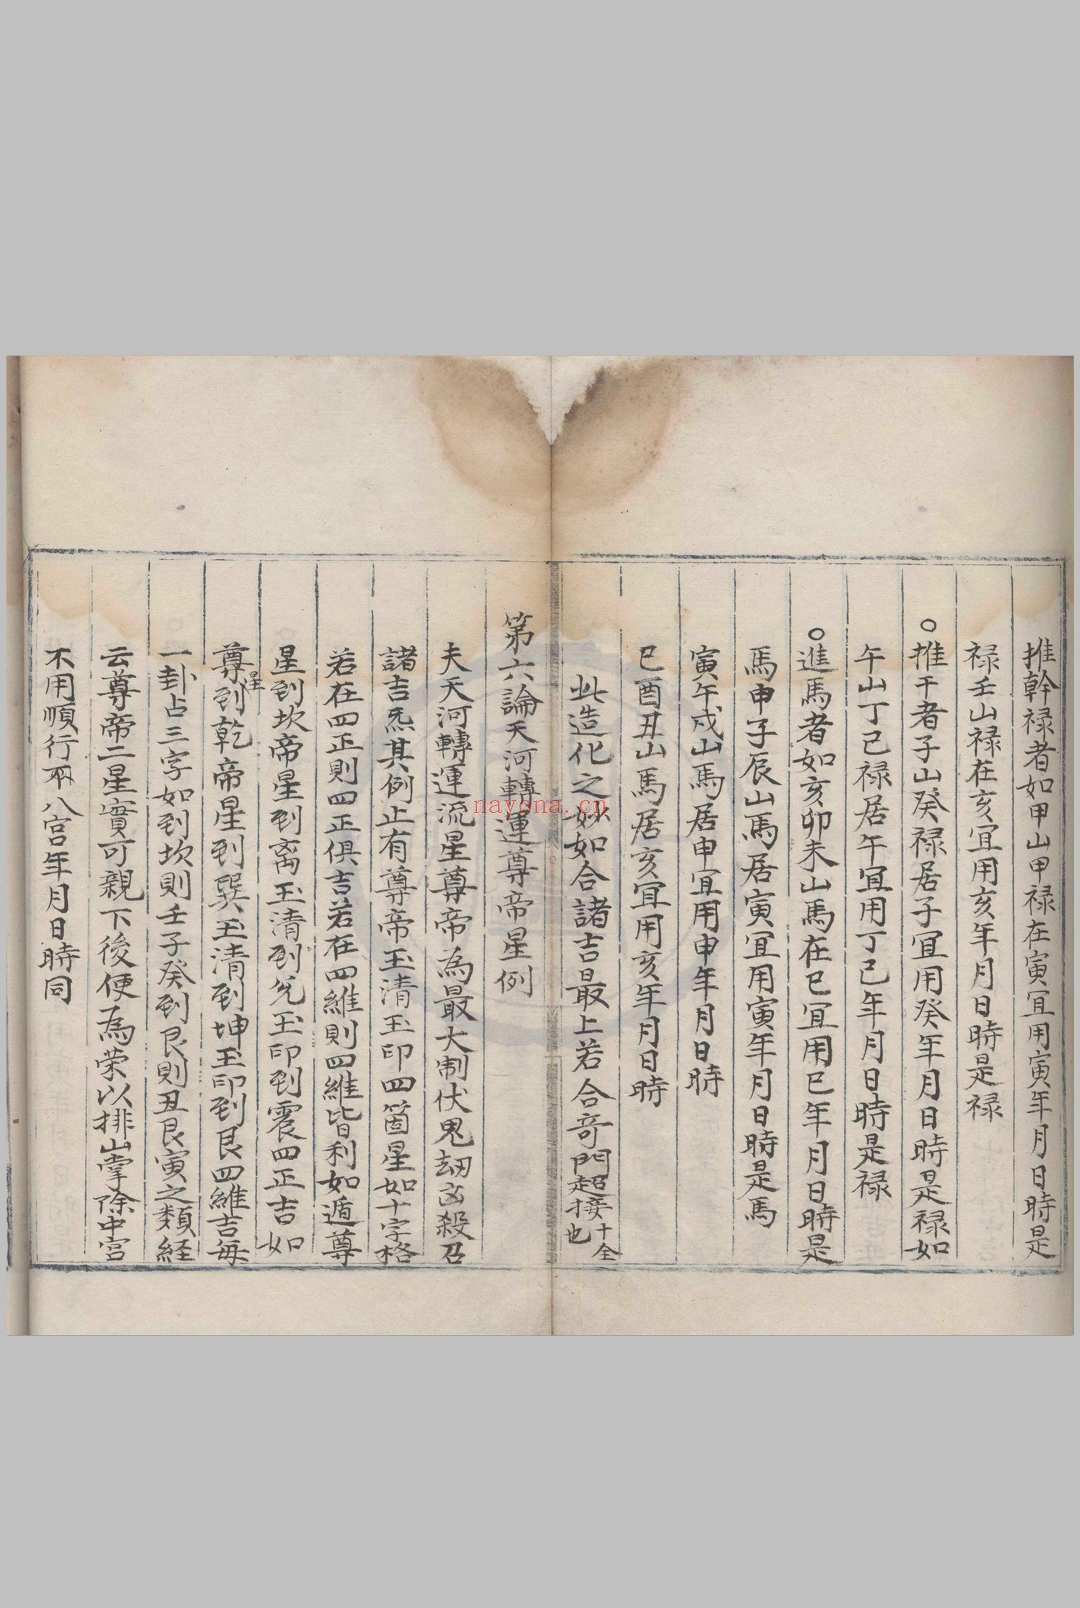 推幹禄者如甲山甲禄在寅宜用寅年月日時是
禄壬山禄在亥宜用亥年月日時是禄
○推干者子山癸禄居子宜用癸年月日時是禄如
午山丁己禄居午宜用丁己年月日時是禄
○進馬者如亥卯未山馬在巳宜用巳年月日時是
馬申子辰山馬居寅宜用寅年月日時是馬
寅午戍山馬居申宜用申年月日時
巳酉丑山馬居亥宜用亥年月日時
此造化之妙如合諸吉最上若合奇門超接十全也
第六論天河轉運尊帝星例
夫天河轉運流星尊帝為最大制伏鬼刼凶殺召
諸吉炁其例止有尊帝玉清玉印四箇星如十字格
若在四正則四正俱吉若在四維則四維皆利如遁尊
星到坎帝星到离玉清到兊玉印到震四正吉如
尊星到乾帝星到巽玉清到坤玉印到艮四維吉每
一卦占三字如到坎則壬子癸到艮則丑艮寅之類経
云尊帝二星實可親下後便為荣以排山掌除中宫
不用順行八宫年月日時同
nayona.cn